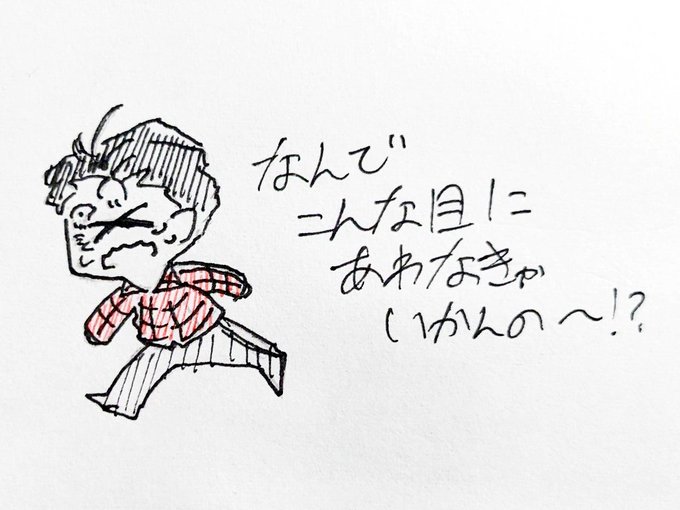 なんで
こんな目に
あわなきゃ
いかんの〜!?